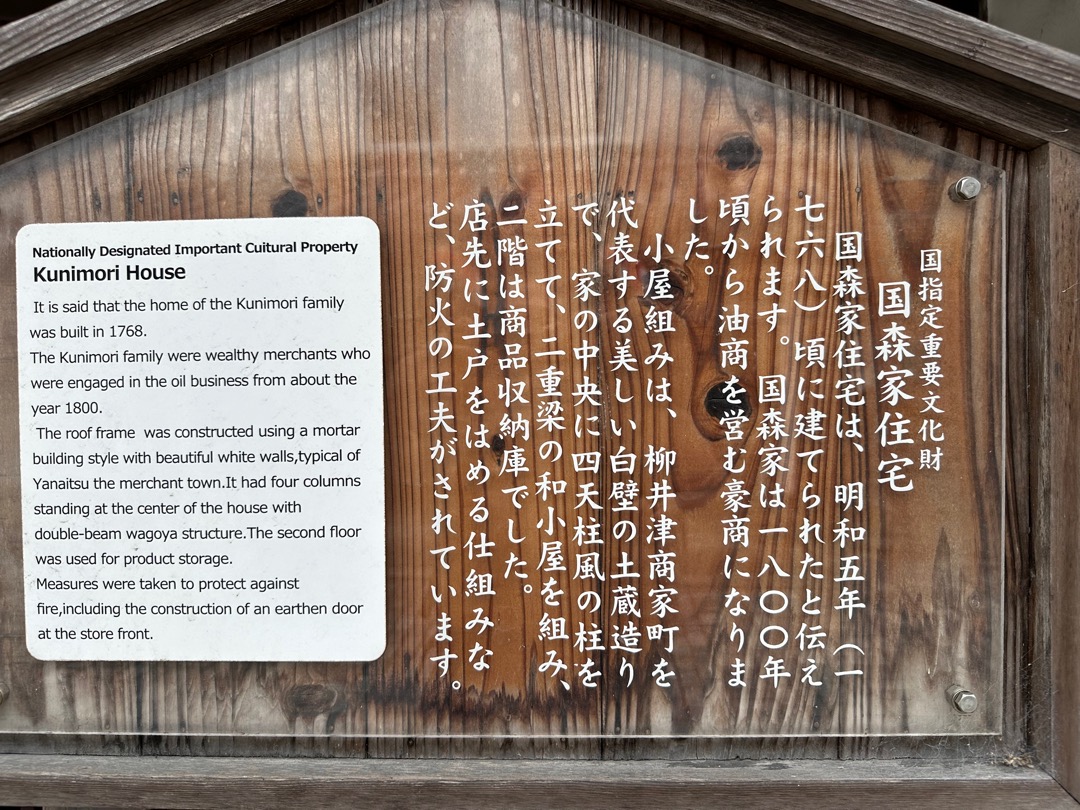 Nationally Designated Important Cuitural Property
Kunimori House
It is said that the home of the Kunimori family
was built in 1768.
The Kunimori family were wealthy merchants who
were engaged in the oil business from about the
year 1800.
The roof frame was constructed using a mortar
building style with beautiful white walls,typical of
Yanaitsu the merchant town.It had four columns
standing at the center of the house with
double-beam wagoya structure.The second floor
was used for product storage.
Measures were taken to protect against
fire,including the construction of an earthen door
at the store front.
国指定重要文化財
国森家住宅
国森家住宅は、明和五年（一
七六八）頃に建てられたと伝え
られます。国森家は一八〇〇年
頃から油商を営む豪商になりま
した。
小屋組みは、柳井津商家町を
代表する美しい白壁の土蔵造り
で、家の中央に四天柱風の柱を
立てて、二重梁の和小屋を組み、
二階は商品収納庫でした。
店先に土戸をはめる仕組みな
ど、防火の工夫がされています。